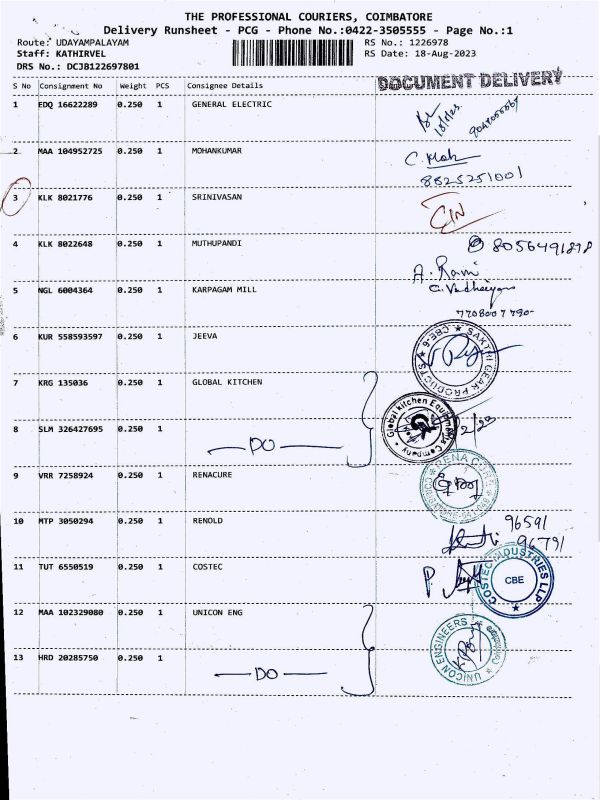 THE PROFESSIONAL COURIERS, COIMBATORE
Delivery Runsheet - PCG - Phone No.:0422-3505555 - Page No.:1
Route: UDAYAMPALAYAM RS No.: 1226978
Staff: KATHIRVEL RS Date: 18-Aug-2023
DRS No.: DCJB122697801
S No Consignment No Weight PCS Consignee Details DOCUMENT DELIVERY
1 EDQ 16622289 0.250 1 GENERAL ELECTRIC
2 MAA 104952725 0.250 1 MOHANKUMAR
8825251001
3 KLK 8021776 0.250 1 SRINIVASAN
4 KLK 8022648 0.250 1 MUTHUPANDI
8056491898
A. Rani
5 NGL 6004364 0.250 1 KARPAGAM MILL
7708007790-
6 KUR 558593597 0.250 1 JEEVA
SAKTHI GEAR PRODUCTS CBE-6
7 KRG 135036 0.250 1 GLOBAL KITCHEN
Global Kitchen Equipments Company
8 SLM 326427695 0.250 1
DO
9 VRR 7258924 0.250 1 RENACURE
10 MTP 3050294 0.250 1 RENOLD
96591
96791
11 TUT 6550519 0.250 1 COSTEC
COSTEC INDUSTRIES LLP
CBE
12 MAA 102329080 0.250 1 UNICON ENG
UNICON ENGINEERS
13 HRD 20285750 0.250 1
DO